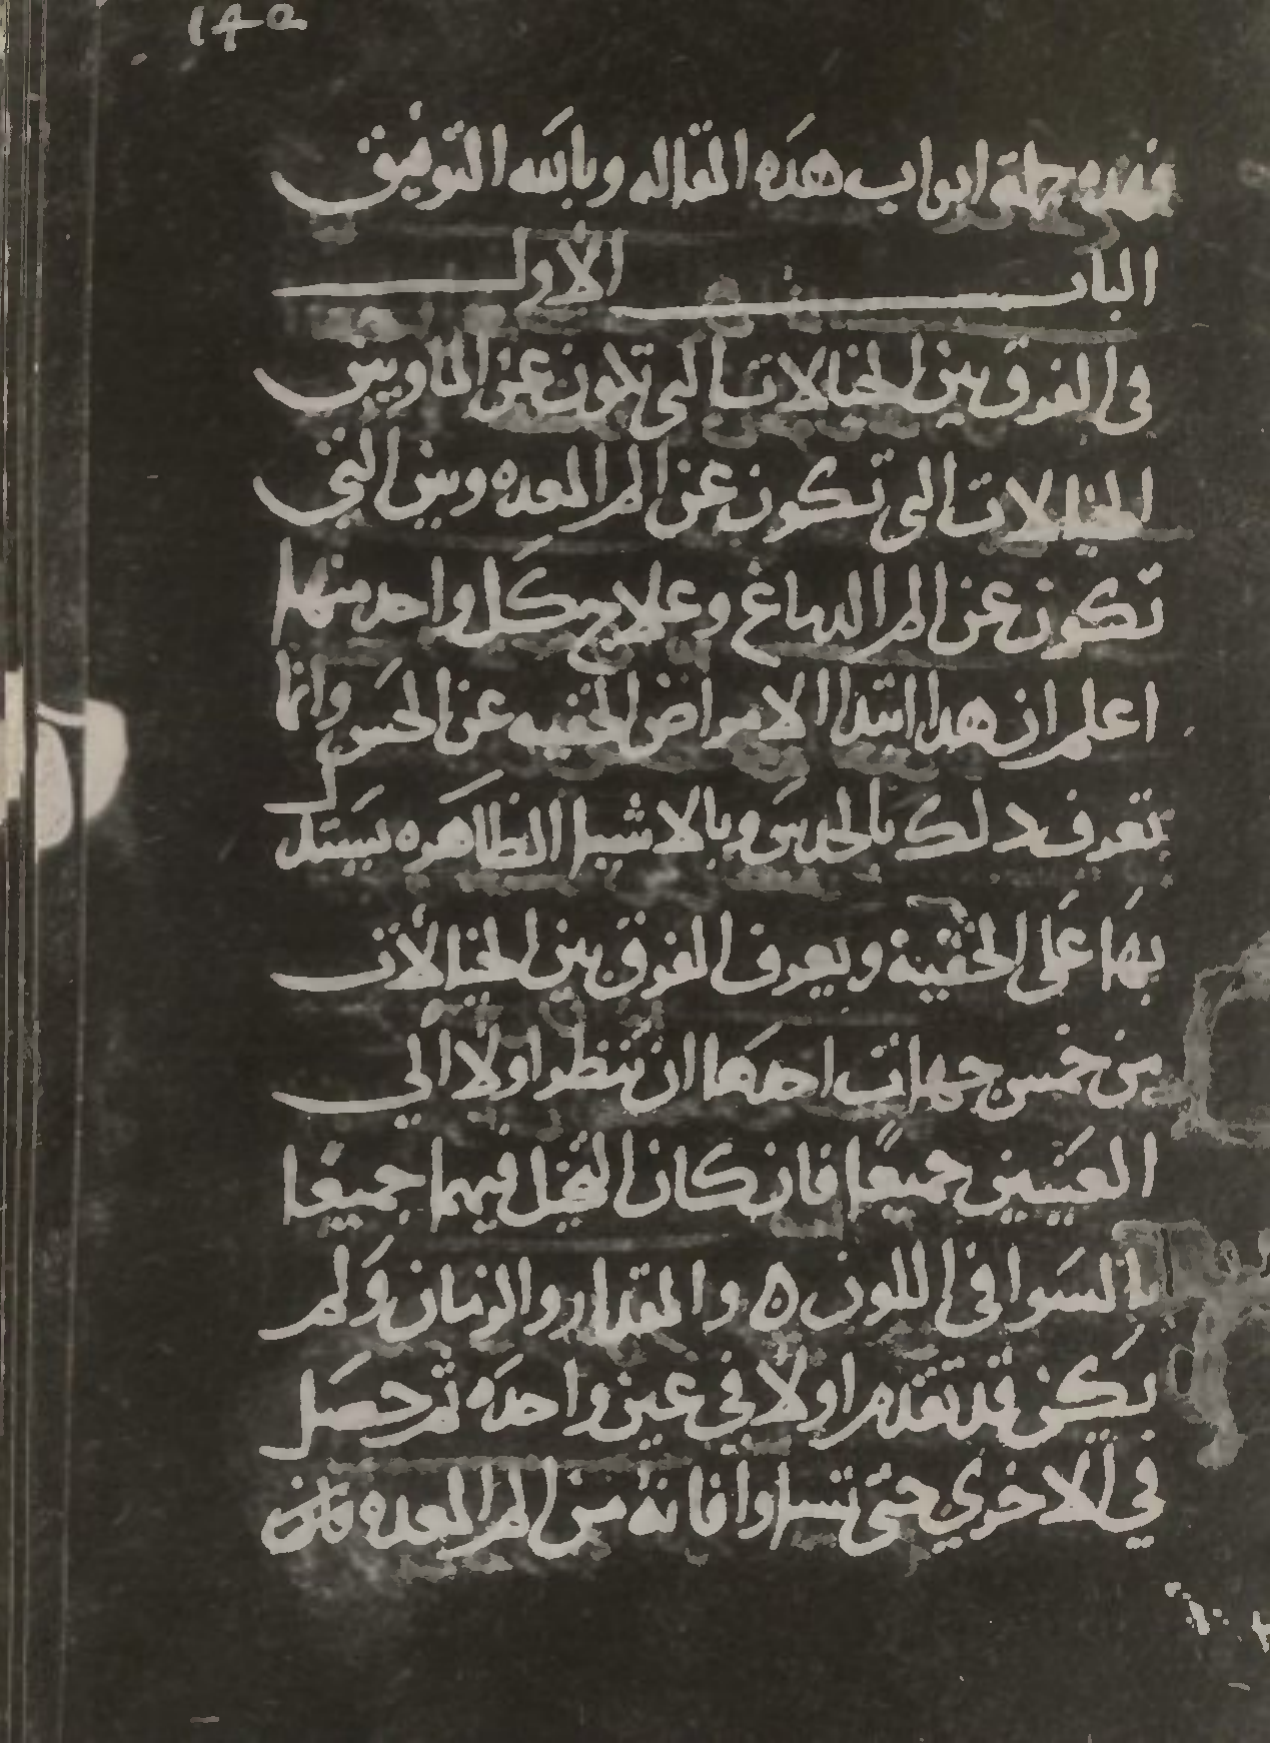 145
فهذه جملة ابواب هذه المقاله وبالله التوفيق
الباب الاول
فى الفرق بين الخيالات التى تكون عن الما وبين
الخيالات التى تكون عن الم المعده وبين التى
تكون عن الم الدماغ وعلاج كل واحد منها
اعلم ان هدا ابتدا الامراض الخفيه عن الحس وانما
تعرف دلك بالحدس وبالاشيا الظاهره يستدل
بها على الخفية ويعرف الفرق بين الخيالات
من خمس جهات احدها ان تنظر اولا الى
العينين جميعا فان كان التخيل فيهما جميعا
بالسوا فى اللون ٥ والمقدار والزمان ولم
يكن قد تقدم اولا في عين واحده ثم حصل
في الاخري حتى تساوا فانه من الم المعده فان